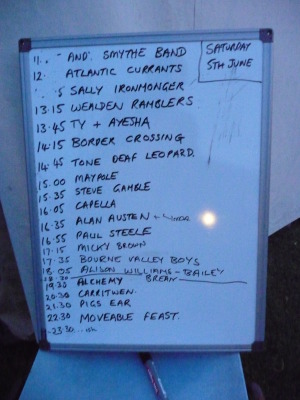 SATURDAY
5TH JUNE
11.. - AND. SMYTHE BAND
12. ATLANTIC CURRANTS
5 SALLY IRONMONGER
13.15 WEALDEN RAMBLERS
13.45 TY + AYESHA
14.15 BORDER CROSSING
14.45 TONE DEAF LEOPARD.
15.00 MAYPOLE
15.35 STEVE GAMBLE
16.05 CAPELLA
16.35 ALAN AUSTEN
16.55 PAUL STEELE
17.15 MICKY BROWN
17.35 BOURNE VALLEY BOYS
18.05 ALISON WILLIAMS-BAILEY
18.30 BREAK
19.30 ALCHEMY
20.30 CARRITWEN.
21.30 PIGS EAR
22.30 MOVEABLE FEAST.
-23.30...ish